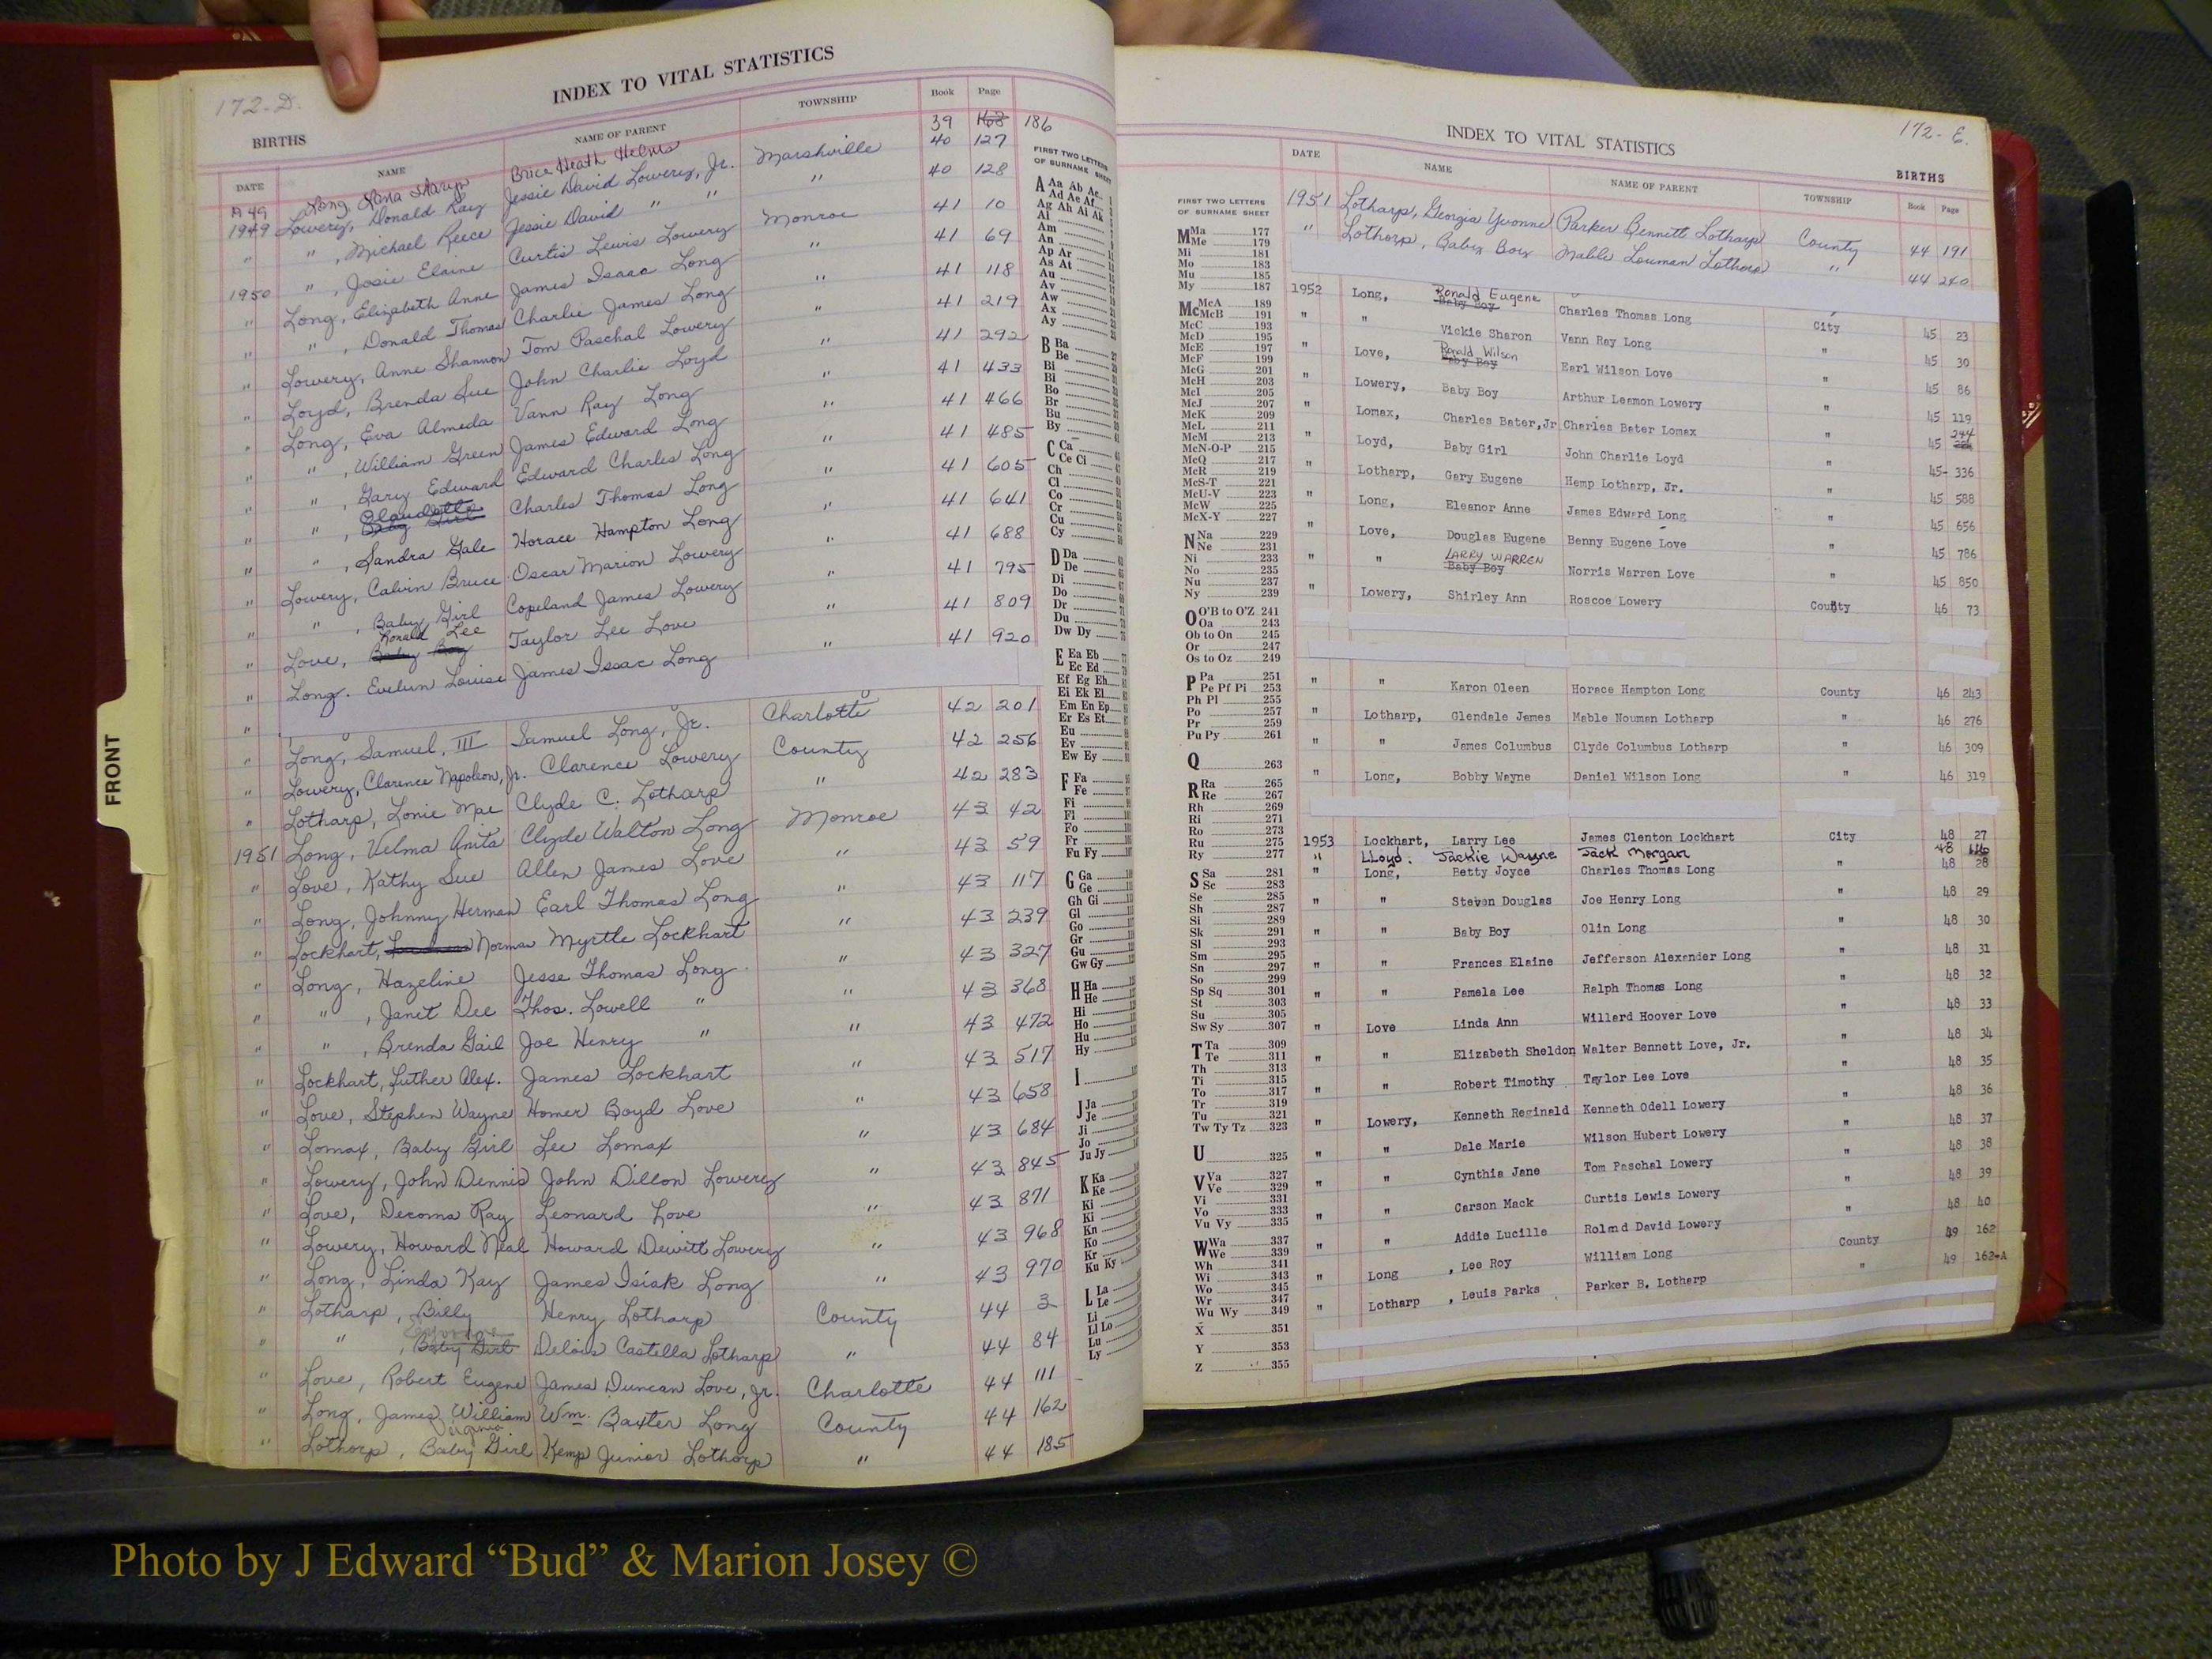 172-D.
INDEX TO VITAL STATISTICS
BIRTHS
DATE NAME NAME OF PARENT TOWNSHIP Book Page
A 49 Long, Brice Heath Helms 39 168 186
1949 Lowery, Donald Ray Jessie David Lowery, Jr. Marshville 40 127
" " , Michael Reece Jessie David " " " 40 128
1950 " , Josie Elaine Curtis Lewis Lowery Monroe 41 10
" Long, Elizabeth Anne James Isaac Long " 41 69
" " , Donald Thomas Charlie James Long " 41 118
" Lowery, Anne Shannon Tom Paschal Lowery " 41 219
" Loyd, Brenda Sue John Charlie Loyd " 41 292
" Long, Eva Almeda Vann Ray Long " 41 433
" " , William Green James Edward Long " 41 466
" " , Gary Edward Edward Charles Long " 41 485
" " , Claudette Baby Girl Charles Thomas Long " 41 605
" " , Sandra Gale Horace Hampton Long " 41 641
" Lowery, Calvin Bruce Oscar Marion Lowery " 41 688
" " , Baby Girl Copeland James Lowery " 41 795
" Love, Ronald Lee Baby Boy Taylor Lee Love " 41 809
" Long. Evelun Louise James Issac Long " 41 920
" Long, Samuel, III Samuel Long, Jr. Charlotte 42 201
" Lowery, Clarence Napoleon, Jr. Clarence Lowery County 42 256
" Lotharp, Lonie Mae Clyde C. Lotharp " 42 283
1951 Long, Velma Anita Clyde Walton Long Monroe 43 42
" Love, Kathy Sue Allen James Love " 43 59
" Long, Johnny Herman Earl Thomas Long " 43 117
" Lockhart, Norman Myrtle Lockhart " 43 239
" Long, Hazeline Jesse Thomas Long " 43 327
" " , Janet Dee Thos. Lowell " " 43 368
" " , Brenda Gail Joe Henry " " 43 472
" Lockhart, Luther Alex. James Lockhart " 43 517
" Love, Stephen Wayne Homer Boyd Love " 43 658
" Lomax, Baby Girl Lee Lomax " 43 684
" Lowery, John Dennis John Dillon Lowery " 43 845
" Love, Decoma Ray Leonard Love " 43 871
" Lowery, Howard Neal Howard Dewitt Lowery " 43 968
" Long, Linda Kay James Isiak Long " 43 970
" Lotharp, Billy Henry Lotharp County 44 3
" " , Baby Girl Delois Castella Lotharp " 44 84
" Love, Robert Eugene James Duncan Love, Jr. Charlotte 44 111
" Long, James William Wm. Baxter Long County 44 162
" Lothorp, Baby Girl Virginia Kemp Junior Lothorp " 44 185
FIRST TWO LETTERS
OF SURNAME SHEET
A Aa Ab Ac
Ad Ae Af
Ag Ah Ai Ak
Al
Am
An
Ap Ar
As At
Au
Av
Aw
Ax
Ay
B Ba
Be
Bi
Bl
Bo
Br
Bu
By
C Ca
Ce Ci
Ch
Cl
Co
Cr
Cu
Cy
D Da
De
Di
Do
Dr
Du
Dw Dy
E Ea Eb
Ec Ed
Ef Eg Eh
Ei Ek El
Em En Ep
Er Es Et
Eu
Ev
Ew Ey
F Fa
Fe
Fi
Fl
Fo
Fr
Fu Fy
G Ga
Ge
Gh Gi
Gl
Go
Gr
Gu
Gw Gy
H Ha
He
Hi
Ho
Hu
Hy
I
J Ja
Je
Ji
Jo
Ju Jy
K Ka
Ke
Ki
Kl
Kn
Ko
Kr
Ku Ky
L La
Le
Li
Ll Lo
Lu
Ly
FRONT
172-E.
INDEX TO VITAL STATISTICS
BIRTHS
DATE NAME NAME OF PARENT TOWNSHIP Book Page
1951 Lotharp, Georgia Yvonne Parker Bennett Lotharp County 44 191
" Lothorp, Baby Boy Mable Louman Lothorp " 44 240
1952 Long, Ronald Eugene Baby Boy Charles Thomas Long City 45 23
" " Vickie Sharon Vann Ray Long " 45 30
" Love, Ronald Wilson Baby Boy Earl Wilson Love " 45 86
" Lowery, Baby Boy Arthur Leamon Lowery " 45 119
" Lomax, Charles Bater, Jr Charles Bater Lomax " 45 244
" Loyd, Baby Girl John Charlie Loyd " 45- 336
" Lotharp, Gary Eugene Hemp Lotharp, Jr. " 45 588
" Long, Eleanor Anne James Edward Long " 45 656
" Love, Douglas Eugene Benny Eugene Love " 45 786
" " LARRY WARREN Baby Boy Norris Warren Love " 45 850
" Lowery, Shirley Ann Roscoe Lowery County 46 73
" " Karon Oleen Horace Hampton Long County 46 243
" Lotharp, Glendale James Mable Nouman Lotharp " 46 276
" " James Columbus Clyde Columbus Lotharp " 46 309
" Long, Bobby Wayne Daniel Wilson Long " 46 319
1953 Lockhart, Larry Lee James Clenton Lockhart City 48 27
" LLoyd. Jackie Wayne Jack Morgan 48
" Long, Betty Joyce Charles Thomas Long 48 28
" " Steven Douglas Joe Henry Long " 48 29
" " Baby Boy Olin Long " 48 30
" " Frances Elaine Jefferson Alexander Long " 48 31
" " Pamela Lee Ralph Thomas Long " 48 32
" Love Linda Ann Willard Hoover Love " 48 33
" " Elizabeth Sheldon Walter Bennett Love, Jr. " 48 34
" " Robert Timothy Taylor Lee Love " 48 35
" Lowery, Kenneth Reginald Kenneth Odell Lowery " 48 36
" " Dale Marie Wilson Hubert Lowery " 48 37
" " Cynthia Jane Tom Paschal Lowery " 48 38
" " Carson Mack Curtis Lewis Lowery " 48 39
" " Addie Lucille Roland David Lowery " 48 40
" Long , Lee Roy William Long County 49 162
" Lotharp , Leuis Parks Parker B. Lotharp " 49 162-A
FIRST TWO LETTERS
OF SURNAME SHEET
M Ma 177
Me 179
Mi 181
Mo 183
Mu 185
My 187
Mc McA 189
McB 191
McC 193
McD 195
McE 197
McF 199
McG 201
McH 203
McI 205
McJ 207
McK 209
McL 211
McM 213
McN-O-P 215
McQ 217
McR 219
McS-T 221
McU-V 223
McW 225
McX-Y 227
N Na 229
Ne 231
Ni 233
No 235
Nu 237
Ny 239
O O'B to O'Z 241
Oa 243
Ob to On 245
Or 247
Os to Oz 249
P Pa 251
Pe Pf Pi 253
Ph Pl 255
Po 257
Pr 259
Pu Py 261
Q 263
R Ra 265
Re 267
Rh 269
Ri 271
Ro 273
Ru 275
Ry 277
S Sa 281
Sc 283
Se 285
Sh 287
Si 289
Sk 291
Sl 293
Sm 295
Sn 297
So 299
Sp Sq 301
St 303
Su 305
Sw Sy 307
T Ta 309
Te 311
Th 313
Ti 315
To 317
Tr 319
Tu 321
Tw Ty Tz 323
U 325
V Va 327
Ve 329
Vi 331
Vo 333
Vu Vy 335
W Wa 337
We 339
Wh 341
Wi 343
Wo 345
Wr 347
Wu Wy 349
X 351
Y 353
Z 355
Photo by J Edward “Bud” & Marion Josey ©